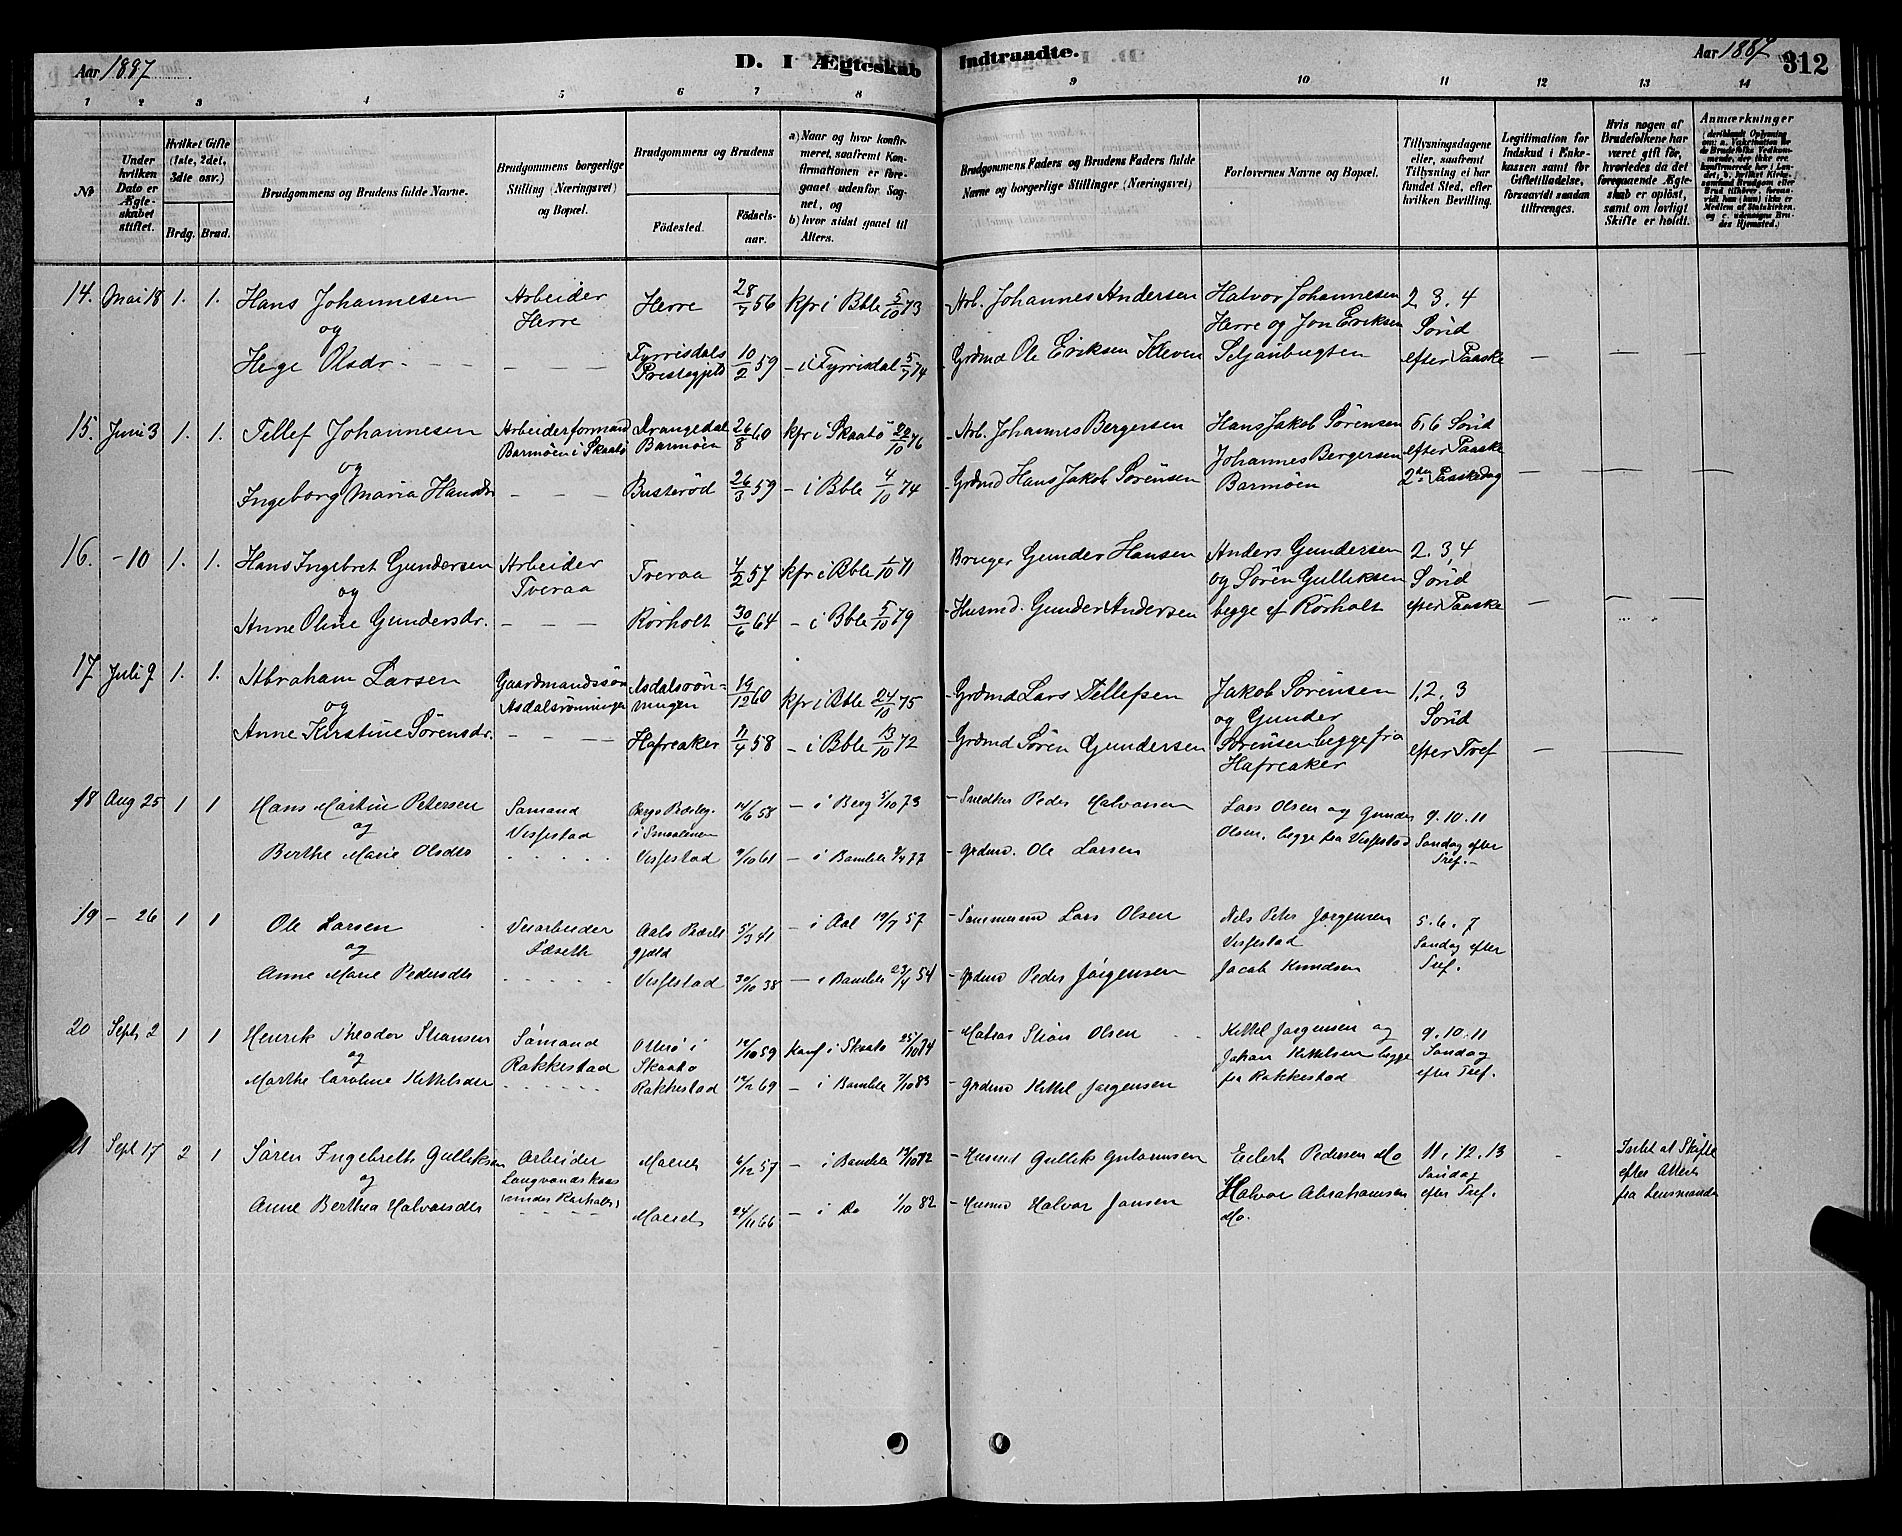 Aar 1887
D. I Ægteskab Indtraadte.
Aar 1887
312
1 2 3 4 5 6 7 8 9 10 11 12 13 14
№
Under hvilken Dato er Ægteskabet stiftet.
Hvilket Gifte (1ste, 2det, 3die osv.)
Brdg. Brud.
Brudgommens og Brudens fulde Navne.
Brudgommens borgerlige Stilling (Næringsvei) og Bopæl.
Brudgommens og Brudens
Fødested.
Fødselsaar.
a) Naar og hvor konfirmeret, saafremt Konfirmationen er foregaaet udenfor Sognet, og
b) hvor sidst gaaet til Alters.
Brudgommens Faders og Brudens Faders fulde Navne og borgerlige Stillinger (Næringsvei)
Forlovernes Navne og Bopæl.
Tillysningsdagene eller, saafremt Tillysning ei har fundet Sted, efter hvilken Bevilling.
Legitimation for Indskud i Enkekassen samt for Giftetilladelse, forsaavidt saadan tiltrænges.
Hvis nogen af Brudefolkene har været gift før, hvorledes da det foregaaende Ægteskab er opløst, samt om lovligt Skifte er holdt.
Anmærkninger
14. Mai 18 1. 1. Hans Johannesen Arbeider Herre 28/7 56 kfr i Bble 5/10 73 Arb. Johannes Andersen Halvor Johannesen 2, 3, 4
og Herre Herre og Jon Eriksen Sønd
Hege Olsdr. - - - Fyrrisdals Prestegjeld 10/2 59 - i Fyrrisdal 5/7 74 Grdmd Ole Eriksen Kleven Seljanbugten efter Paaske
15. Juni 3 1. 1. Tellef Johannesen Arbeiderformand Drangedal 26/8 60 kfr i Skaatö 22/10 76 Arb. Johannes Bergersen Hans Jakob Sörensen 5, 6 Sönd
og Barmöen i Skaatö Barmöen Johannes Bergersen efter Paaske
Ingeborg Maria Hansdr - - - Busterød 26/3 59 - i Bble 4/10 74 Grdmd Hans Jakob Sørensen Barmöen 2den Paaskedag
16. - 10 1. 1. Hans Ingebret Gundersen Arbeider Tveraa 4/2 57 kfr i Bble 1/10 71 Bruger Gunder Hansen Anders Gundersen 2, 3, 4
og Tveraa og Sören Gulliksen Sönd
Anne Oline Gundersdr. - - - Rörholt 30/6 64 - i Bble 5/10 79 Husmd. Gunder Andersen begge af Rörholt efter Paaske
17 Juli 9 1. 1. Abraham Larsen Gaardmandssön Asdalsrönningen 19/12 60 kfr i Bble 24/10 75 Grdmd Lars Tellefsen Jakob Sörensen 1, 2, 3
og Asdalsrönningen og Gunder Sönd
Anne Kirstine Sörensdr. - - - Hafreaker 11/4 58 - i Bble 13/10 72 Grdmd Sören Gundersen Sörensen begge fra efter Tref
Hafreaker
18 Aug 25 1 1 Hans Martin Petersen Sømand 14/6 58 - i Berg 5/10 73 Snedker Peder Halvorsen Lars Olsen og Gunder 9. 10. 11
og Vesfestad i Smaalenene Olsen, begge fra Vesfestad Søndag efter
Berthe Marie Olsdtr - - - Vesfestad 9/10 61 - i Bamble 8/4 77 Grdmd. Ole Larsen Tref.
19 - 26 1 1 Ole Larsen Veiarbeider Aals Præste 5/3 41 - i Aal 19/7 57 Tømmermd Lars Olsen Nils Peter Jørgensen 5. 6. 7
og gjeld Vesfestad Søndag efter
Anne Marie Pedersdtr - - - Vesfestad 30/10 38 - i Bamble 23/4 54 Grdmd Peder Jörgensen Jacob Knudsen Tref.
20 Sept. 2 1 1 Henrik Theodor Stiansen Sømand Otterö i 12/10 59 Konf i Skaatö 25/10 74 Matros Stian Olsen Kittel Jørgensen og 9. 10. 11
og Rakkestad Skaatö Johan Kittelsen begge Søndag
Marthe Caroline Kittelsdtr - - - Rakkestad 12/2 69 - i Bamble 7/10 83 Grdmd Kittel Jørgensen fra Rakkestad efter Tref.
21 Sept 17 2 1 Søren Ingebreth Gulliksen Arbeider 6/12 57 - i Bamble 13/10 72 Husmd Gullik Eilert Pedersen Mo 11. 12. 13
og Langvandskaas Søndag
Anne Berthea Halvorsdtr 24/11 66 - i Do 1/10 82 Husmd Halvor Jansen Halvor Abrahamsen efter Tref.
Mo.
Intet at Skifte
efter Attest
fra Lensmanden